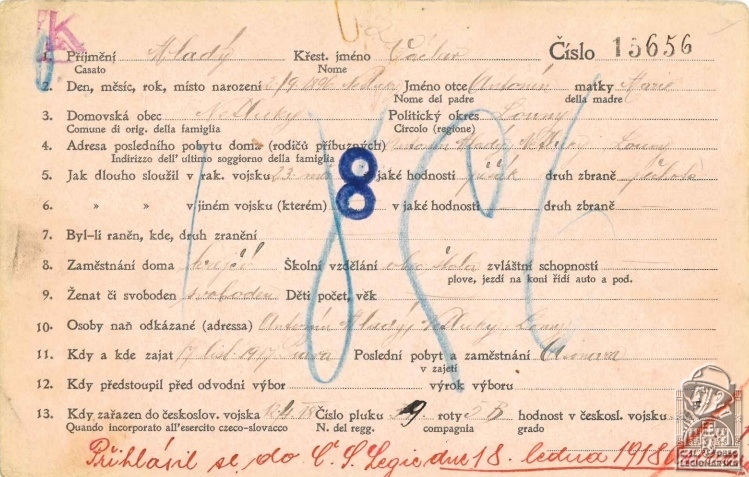 K
1. Příjmení Mladý Křest. jméno Václav Číslo 15656
Casato Nome
2. Den, měsíc, rok, místo narození 2/9 1896 Jméno otce Antonín matky Marie
Nome del padre della madre
3. Domovská obec Nečtuky Politický okres Louny
Comune di orig. della famiglia Circolo (regione)
4. Adresa posledního pobytu doma (rodičů příbuzných) Antonín Mladý, Louny
Indirizzo dell' ultimo soggiorno della famiglia
5. Jak dlouho sloužil v rak. vojsku 23 měs. v jaké hodnosti pěšák druh zbraně pěchota
8
6. » » v jiném vojsku (kterém) v jaké hodnosti druh zbraně
7. Byl-li raněn, kde, druh zranění
8. Zaměstnání doma krejčí Školní vzdělání obec. škola zvláštní schopnosti
plove, jezdí na koni řídí auto a pod.
9. Ženat či svoboden svoboden Dětí počet, věk
10. Osoby naň odkázané (adressa) Antonín Mladý, Louny
11. Kdy a kde zajat 17 list. 1917 Piava Poslední pobyt a zaměstnání Asinara
v zajetí
12. Kdy předstoupil před odvodní výbor výrok výboru
13. Kdy zařazen do českoslov. vojska Číslo pluku 39. roty hodnost v českosl. vojsku
Quando incorporato all'esercito czeco-slovacco N. del regg. compagnia grado
Přihlásil se do Č. S. Legie dne 18. ledna 1918
ČS OBEC
LEGIONÁŘSKÁ